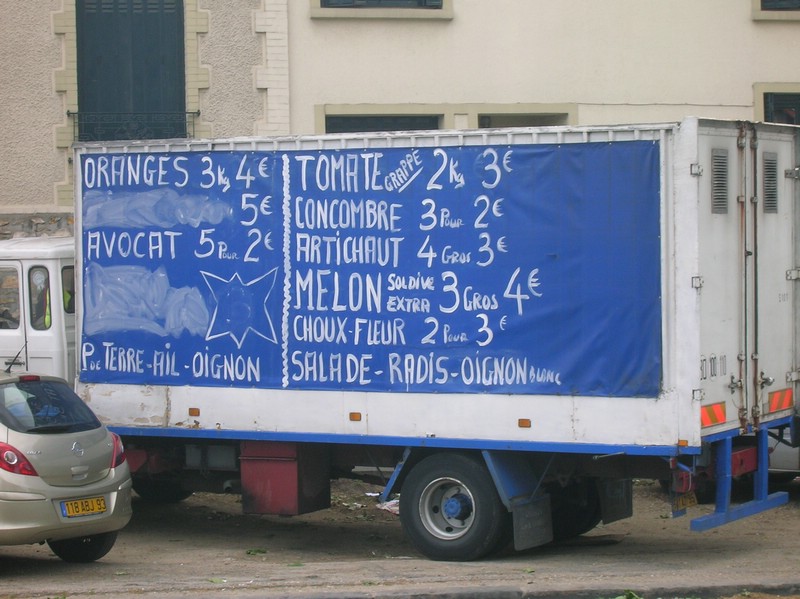 ORANGES 3kg 4€
5€
AVOCAT 5 Pour 2€
P. de TERRE-AIL-OIGNON
TOMATE GRAPPE 2kg 3€
CONCOMBRE 3 Pour 2€
ARTICHAUT 4 Gros 3€
MELON SOLDIVE EXTRA 3 Gros 4€
CHOUX-FLEUR 2 Pour 3€
SALADE-RADIS-OIGNON BLANC
118 ABJ 93